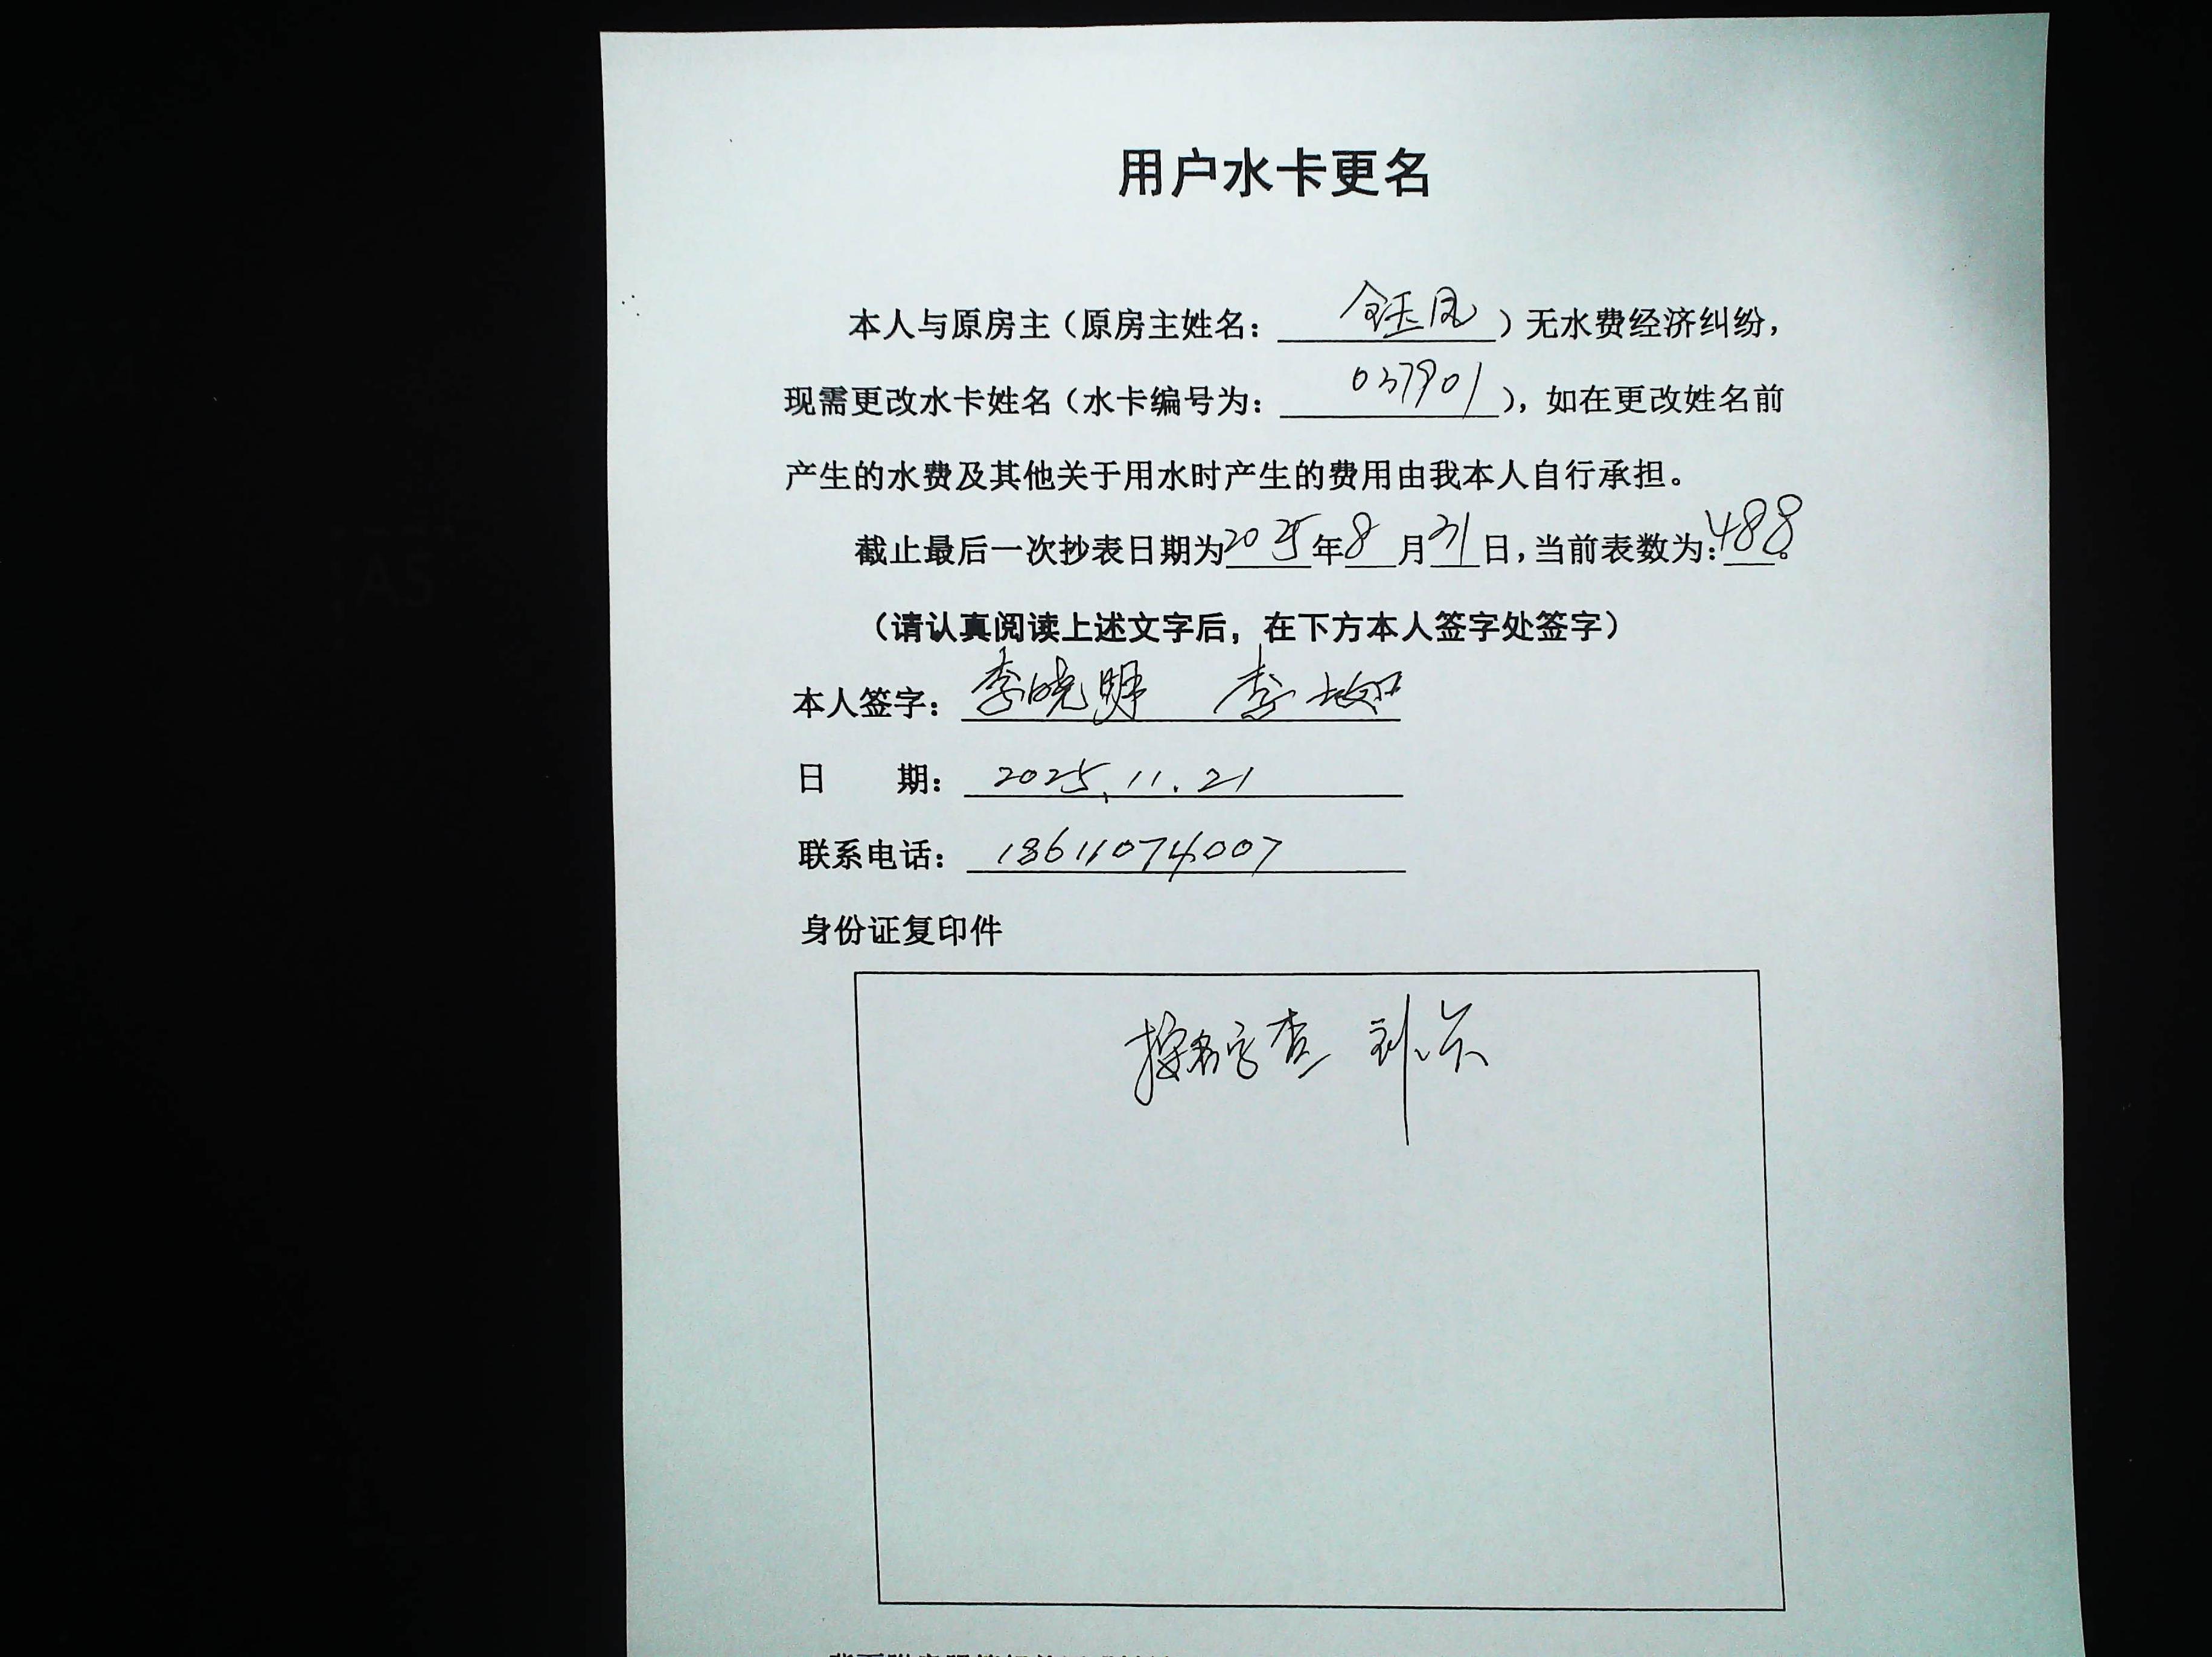 用户水卡更名
本人与原房主（原房主姓名：玉凤）无水费经济纠纷，
现需更改水卡姓名（水卡编号为：037901），如在更改姓名前
产生的水费及其他关于用水时产生的费用由我本人自行承担。
截止最后一次抄表日期为2025年8月31日，当前表数为：488。
（请认真阅读上述文字后，在下方本人签字处签字）
本人签字：李晓明 李
日 期：2025.11.21
联系电话：18611074007
身份证复印件
按名字查 到卡